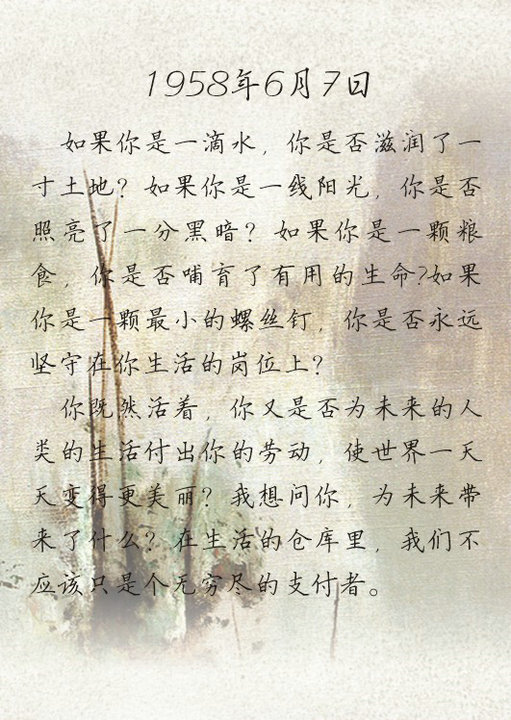 1958年6月7日
如果你是一滴水，你是否滋润了一
寸土地？如果你是一线阳光，你是否
照亮了一分黑暗？如果你是一颗粮
食，你是否哺育了有用的生命?如果
你是一颗最小的螺丝钉，你是否永远
坚守在你生活的岗位上？
你既然活着，你又是否为未来的人
类的生活付出你的劳动，使世界一天
天变得更美丽？我想问你，为未来带
来了什么？在生活的仓库里，我们不
应该只是个无穷尽的支付者。